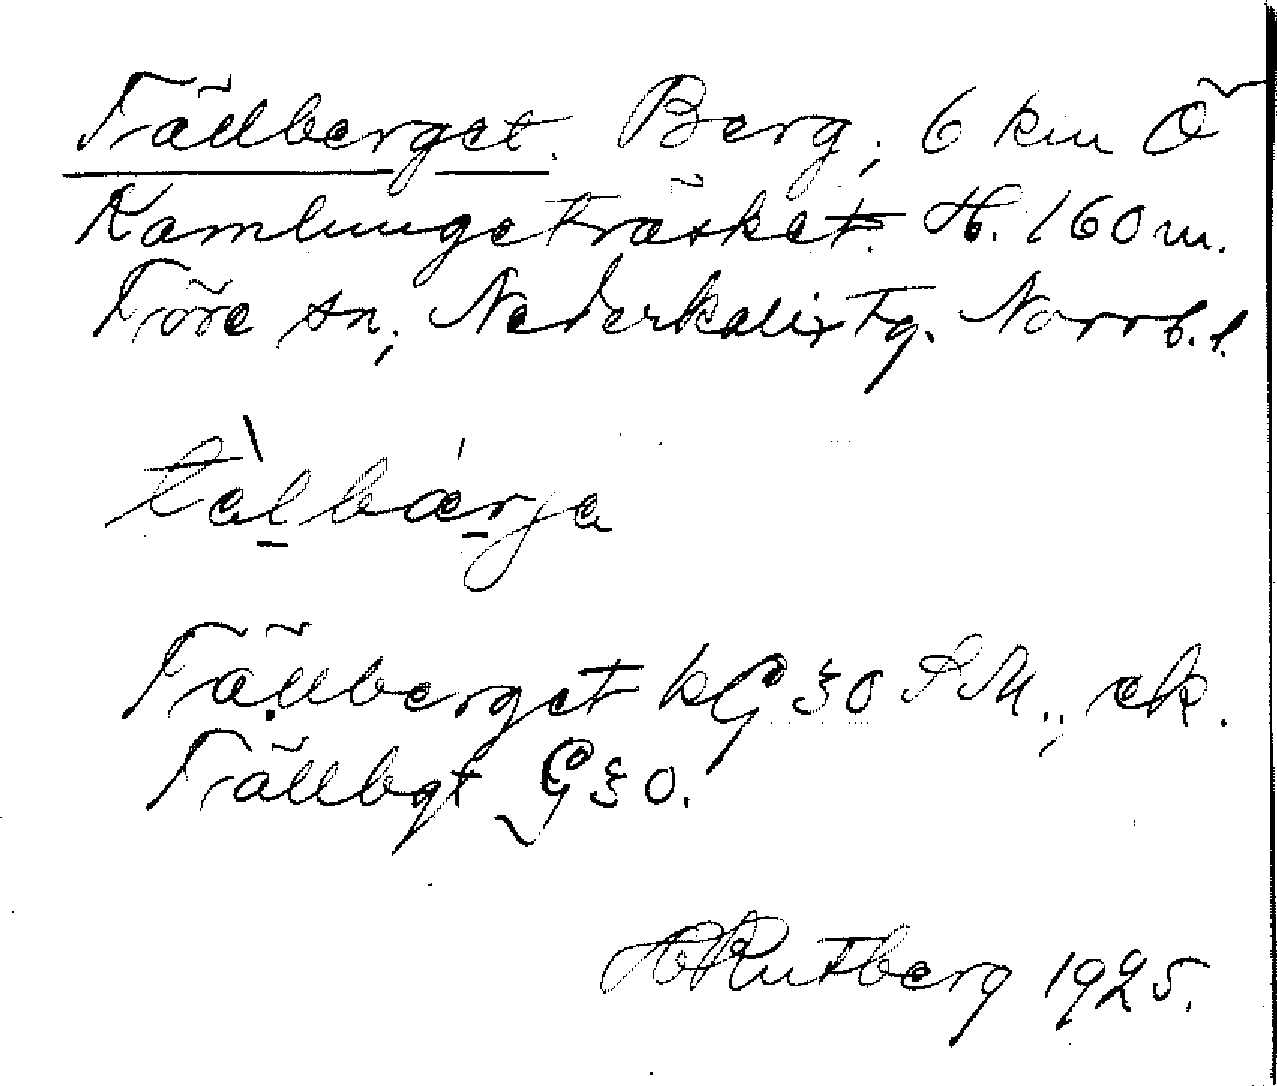 Tällberget. Berg, 6 km Ö
Kamlungeträsket. H. 160 m.
Töre sn, Nederkalix tg. Norrb. l.
tàl̠bær̠ja
Tällberget kG 30 J.M., ek.
Tällbgt G 30.
H Rutberg 1925.